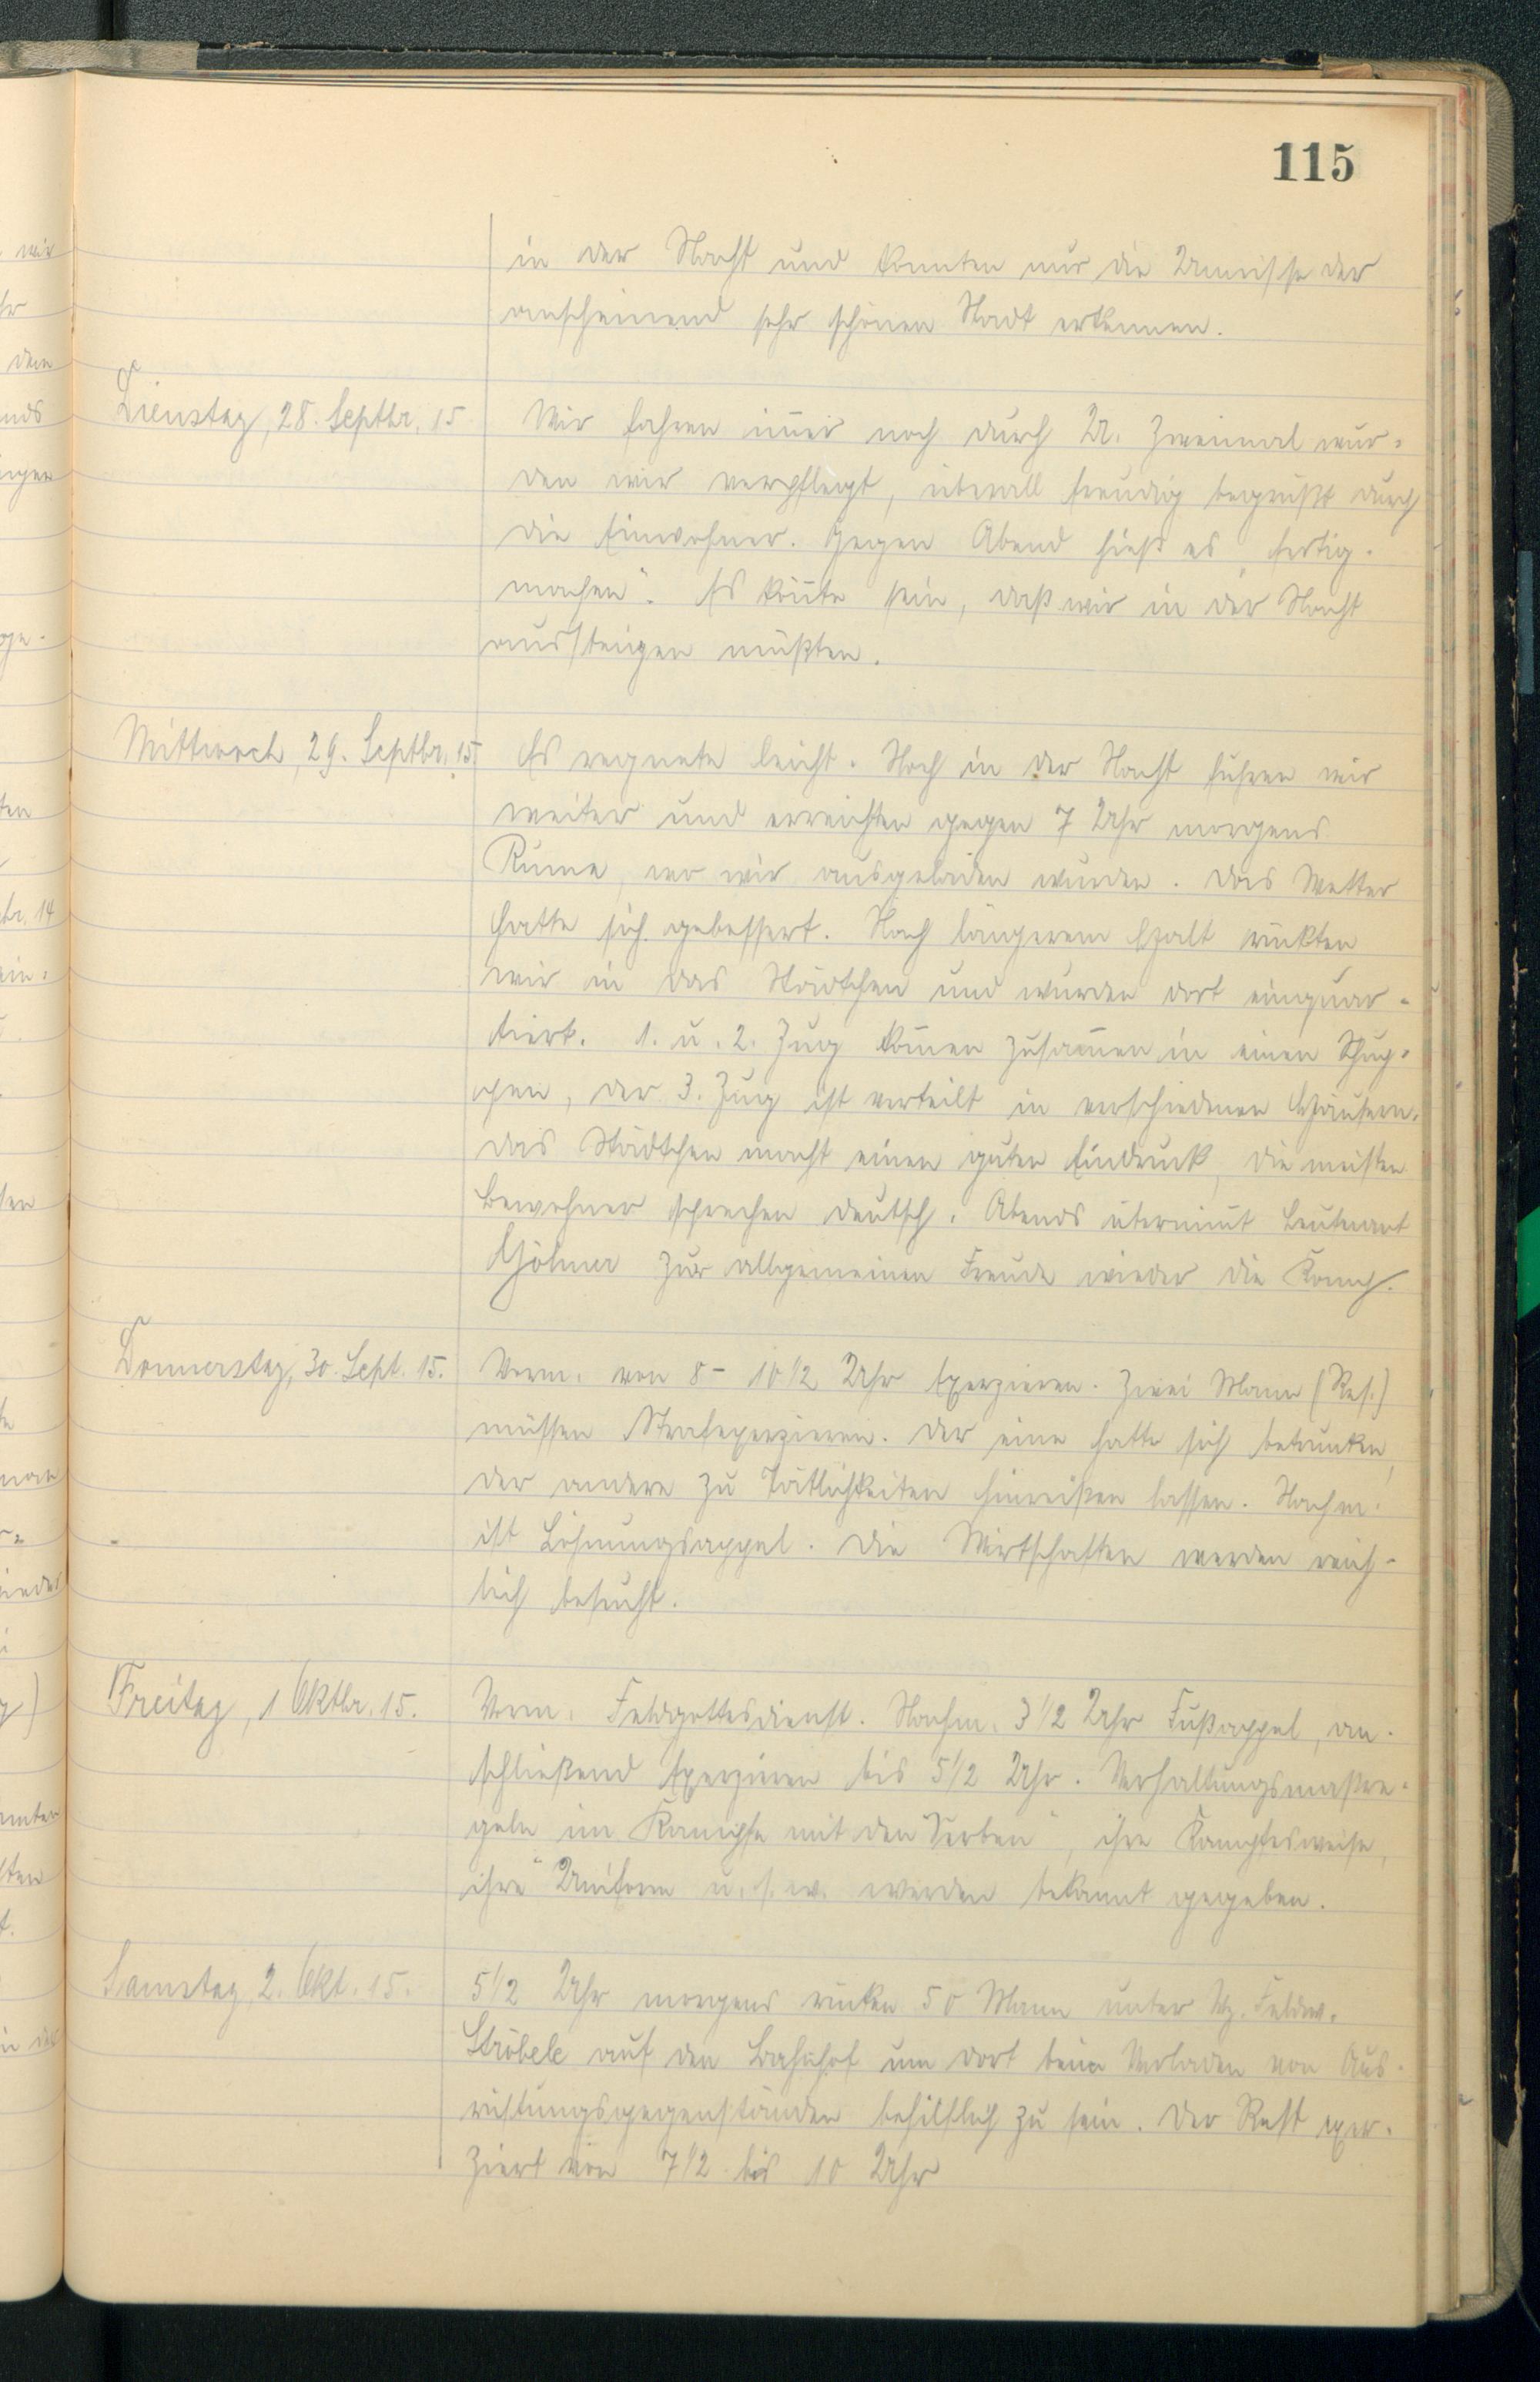 115
in der Nacht und konnten nur die Umrisse der
anscheinend sehr schönen Stadt erkennen.
Dienstag, 28. Septbr. 15
Wir fahren im̄er noch durch U. Zweimal wur-
den wir verpflegt, überall freudig begrüßt durch
die Einwohner. Gegen Abend hieß es „fertig-
machen“. Es kön̄te sein, daß wir in der Nacht
aussteigen müßten.
Mittwoch, 29. Septbr. 15.
Es regnete leicht. Noch in der Nacht fuhren wir
weiter und erreichten gegen 7 Uhr morgens
Ruma, wo wir ausgeladen wurden. Das Wetter
hatte sich gebessert. Nach längerem Halt rückten
wir in das Städtchen und wurden dort einquar-
tiert. 1. u. 2. Zug kom̄en zusam̄en in einen
der 3. Zug ist verteilt in verschiedenen Häusern.
Das Städtchen macht einen guten Eindruck, die meisten
Bewohner sprechen deutsch. Abends übernim̄t Leutnant
zur allgemeinen Freude wieder die Komp.
Donnerstag, 30. Sept. 15.
Vorm. von 8 - 10 1/2 Uhr Exerzieren. Zwei Mann (Res.)
müssen Strafexerzieren. Der eine hatte sich betrunken,
der andere zu Tätlichkeiten hinreißen lassen. Nachm.
ist Löhnungsappel. Die Wirtschaften werden reich-
lich besucht.
Freitag, 1 Oktbr. 15.
Vorm. Feldgottesdienst. Nachm. 3 1/2 Uhr Fußappel, an-
schließend Exerzieren bis 5 1/2 Uhr. Verhaltungsmaßre-
geln im Kampfe mit den "Serben", ihre Kampfesweise,
ihre Uniform u. s. w. werden bekannt gegeben.
Samstag, 2. Okt. 15.
5 1/2 Uhr morgens rücken 50 Mann unter Vz. Feldw.
Ströbele auf den Bahnhof um dort beim Verladen von Aus-
rüstungsgegenständen behilflich zu sein. Der Rest exer-
ziert von 7 1/2 bis 10 Uhr